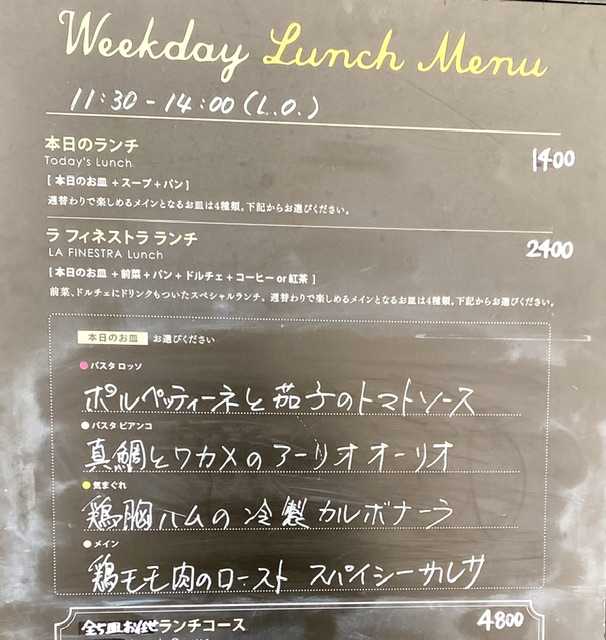 Weekday Lunch Menu
11:30-14:00(L.O.)
本日のランチ 1400
Today's Lunch
[ 本日のお皿 + スープ + パン ]
週替わりで楽しめるメインとなるお皿は4種類。下記からお選びください。
ラ フィネストラ ランチ 2400
LA FINESTRA Lunch
[ 本日のお皿 + 前菜 + パン + ドルチェ + コーヒー or 紅茶 ]
前菜、ドルチェにドリンクもついたスペシャルランチ。週替わりで楽しめるメインとなるお皿は4種類。下記からお選びください。
本日のお皿 お選びください
●パスタ ロッソ
ポルペッティーネと茄子のトマトソース
●パスタ ビアンコ
真鯛とワカメのアーリオオーリオ
●気まぐれ
鶏胸ハムの冷製カルボナーラ
●メイン
鶏モモ肉のロースト スパイシーサルサ
全5皿 ランチコース 4800